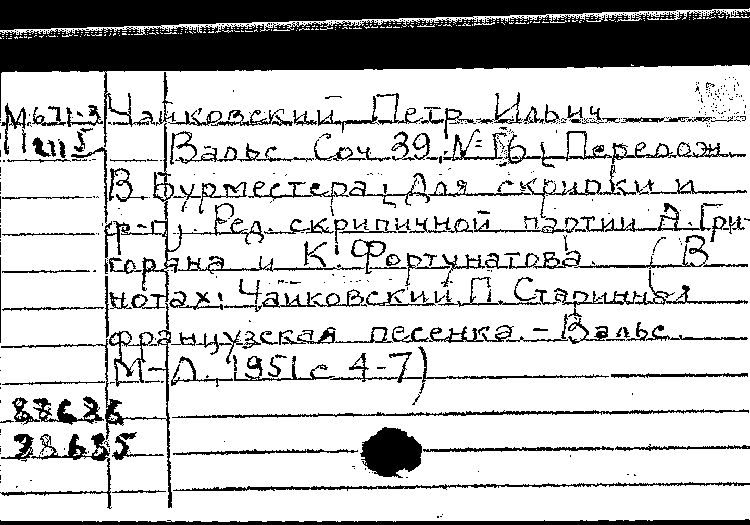 М671-3 Чайковский, Петр Ильич
П2115 Вальс Соч 39, № [6] ; Перелож.
В. Бурместера ; Для скрипки и
ф-п, Ред. скрипичной партии А. Гри-
горяна и К. Фортунатова. (В
нотах: Чайковский, П. Старинная
французская песенка. - Вальс.
М-Л., 1951 с 4-7)
38635